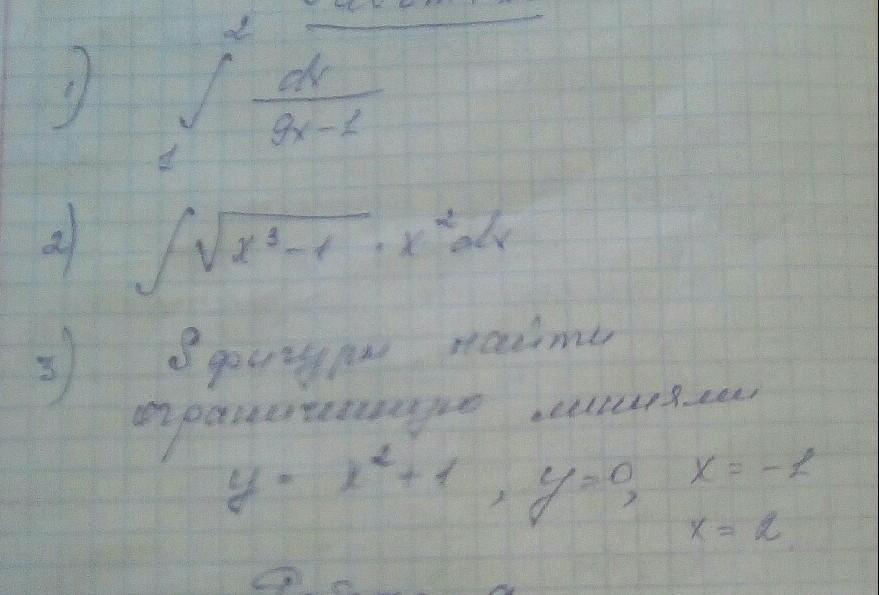 1) ∫₁² dx/(9x-1)
2) ∫√(x³-1) · x² dx
3) S фигуры найти
ограниченную линиями
y = x² + 1, y=0, x = -1
x = 2